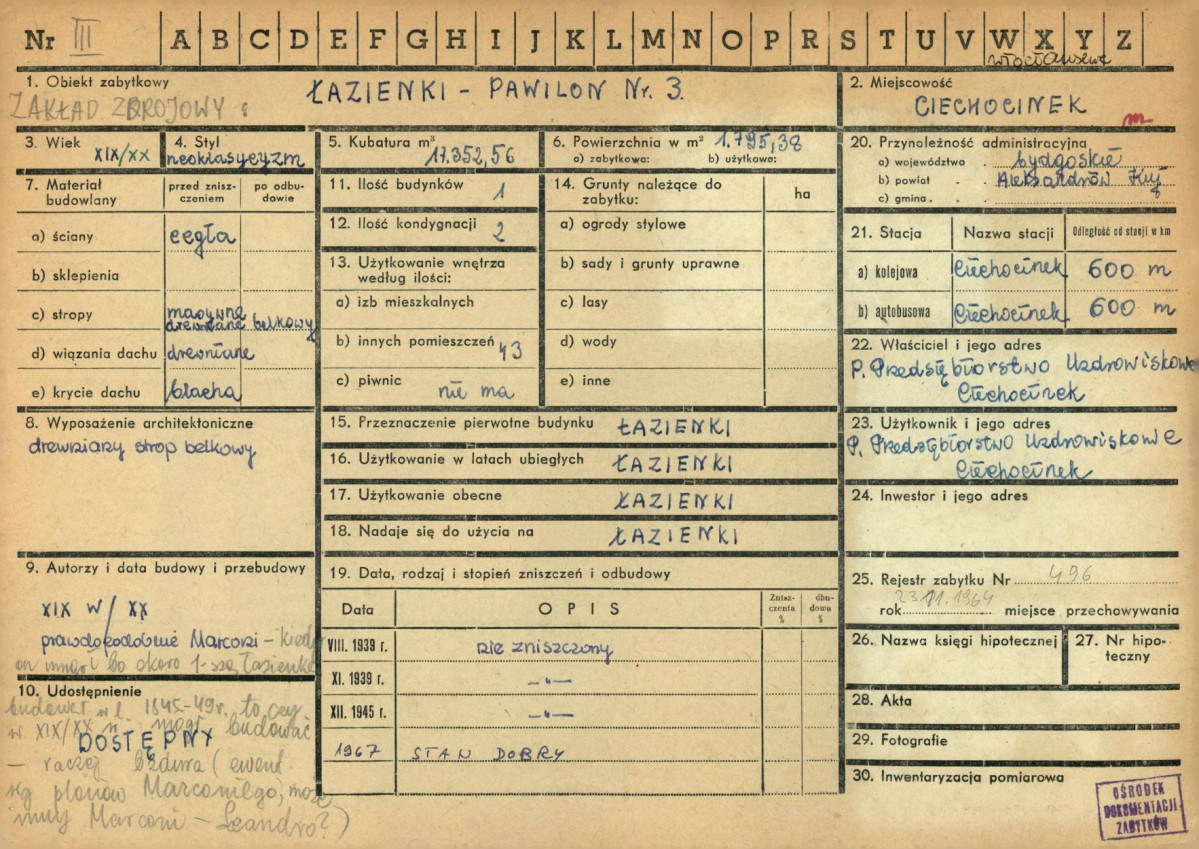 Nr III A B C D E F G H I J K L M N O P R S T U V W X Y Z
Włocławek
1. Obiekt zabytkowy
ZAKŁAD ZDROJOWY :
ŁAZIENKI - PAWILON Nr. 3.
2. Miejscowość
CIECHOCINEK
m
3. Wiek
XIX/XX
4. Styl
neoklasycyzm
5. Kubatura m³
17.352,56
6. Powierzchnia w m² 1.795,38
a) zabytkowa: b) użytkowa:
7. Materiał budowlany
przed znisz-
czeniem
po odbu-
dowie
a) ściany cegła
b) sklepienia
c) stropy
drewniane belkowy
d) wiązania dachu drewniane
e) krycie dachu blacha
8. Wyposażenie architektoniczne
drewniany strop belkowy
9. Autorzy i data budowy i przebudowy
XIX W/XX
prawdopodobnie Marconi – kiedy
on umarł bo około 1-szą Łazienkę
10. Udostępnienie
budował w l. 1845-49r. to czy
w XIX/XX n. mógł budować
DOSTĘPNY
– raczej (ewent.
wg planów Marconiego, może
inny Marconi – Leandro?)
11. Ilość budynków 1
12. Ilość kondygnacji 2
13. Użytkowanie wnętrza
według ilości:
a) izb mieszkalnych
b) innych pomieszczeń 43
c) piwnic nie ma
14. Grunty należące do
zabytku:
ha
a) ogrody stylowe
b) sady i grunty uprawne
c) lasy
d) wody
e) inne
15. Przeznaczenie pierwotne budynku ŁAZIENKI
16. Użytkowanie w latach ubiegłych ŁAZIENKI
17. Użytkowanie obecne ŁAZIENKI
18. Nadaje się do użycia na ŁAZIENKI
19. Data, rodzaj i stopień zniszczeń i odbudowy
Data OPIS
Znisz-
czenia
%
dbu-
dowa
%
VIII. 1939 r. nie zniszczony
XI. 1939 r. –„–
XII. 1945 r. –„–
1967 STAN DOBRY
20. Przynależność administracyjna
a) województwo . bydgoskie
b) powiat . . Aleksandrów Kuj.
c) gmina . . .
21. Stacja Nazwa stacji Odległość od stacji w km
a) kolejowa Ciechocinek 600 m
b) autobusowa Ciechocinek 600 m
22. Właściciel i jego adres
P. Przedsiębiorstwo Uzdrowiskowe
Ciechocinek
23. Użytkownik i jego adres
P. Przedsiębiorstwo Uzdrowiskowe
Ciechocinek
24. Inwestor i jego adres
25. Rejestr zabytku Nr 496
rok 23.11.1964 miejsce przechowywania
26. Nazwa księgi hipotecznej
27. Nr hipo-
teczny
28. Akta
29. Fotografie
30. Inwentaryzacja pomiarowa
OŚRODEK
DOKUMENTACJI
ZABYTKÓW